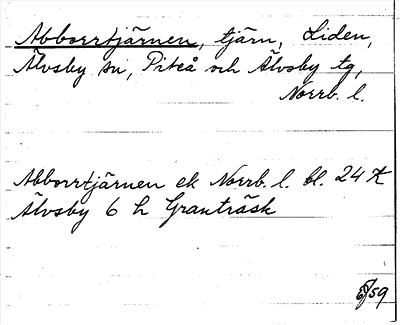 Abborrtjärnen, tjärn, Liden,
Älvsby sn, Piteå och Älvsby tg,
Norrb. l.
Abborrtjärnen ek Norrb. l. bl. 24
Älvsby 6 h Granträsk
/59